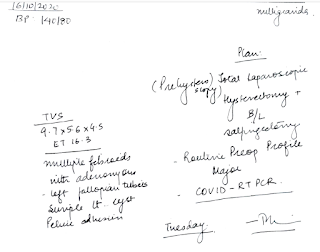 16/10/2020
BP - 140/80
multigravida
Plan:
(Prehystero) Total laparoscopic
scopy) Hysterectomy +
B/L
salpingectomy
- Routine Preop Profile
Major
- COVID - RTPCR
Tuesday
TVS
9.7 x 5.6 x 4.5
ET 16.3
multiple fibroids
with adenomyosis
- left fallopian tubes
Simple Lt. cyst
Pelvic adhesion